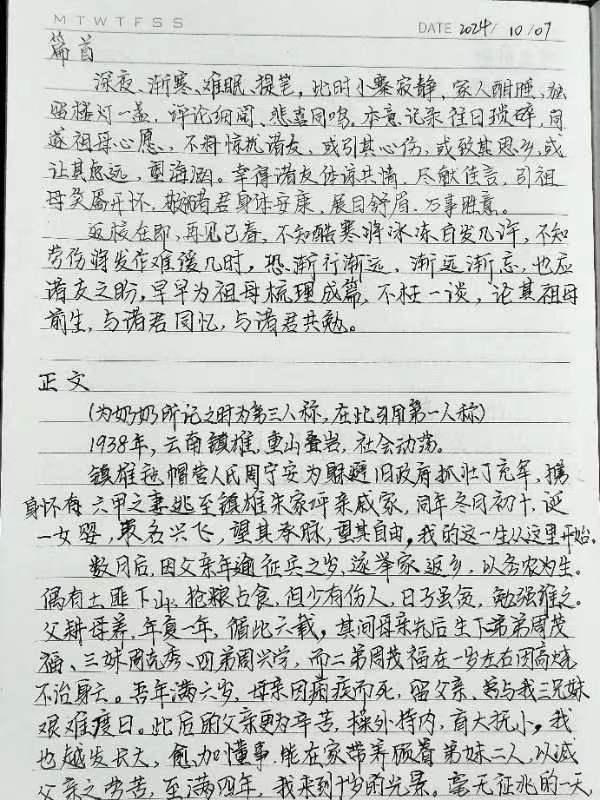 M T W T F S S
DATE 2024/10/07
篇首
深夜、渐寒、难眠、提笔，此时小寨寂静，家人酣睡、独
留楼灯一盏，评论细阅、悲喜同鸣。本意记录往日琐碎，同
遂祖母心愿，不料惊扰诸友，或引其心伤，或致其思乡，或
让其忿远，望海涵。幸得诸友体谅共情，尽献佳言，引祖
母笑属开怀，敬祝诸君身体安康，展目舒眉，万事胜意。
返校在即，再见已春，不知酷寒将冰冻白发几许，不知
劳伤将发作难缓几时，恐渐行渐远、渐远渐忘，也应
诸友之盼，早早为祖母梳理成篇，不枉一谈，论其祖母
前生，与诸君同忆，与诸君共勉。
正文
(为奶奶所记之时为第三人称，在此引用第一人称)
1938年，云南镇雄，重山叠岩，社会动荡。
镇雄毡帽营人民周宁安为躲避旧政府抓壮丁充军，携
身怀有六甲之妻逃至镇雄朱家坪亲戚家，同年冬月初十，诞
一女婴，取名兴飞，望其眷脉，望其自由，我的这一生从这里开始。
数月后，因父亲年逾征兵之岁，遂举家返乡，以务农为生。
偶有土匪下山，抢粮占食，但少有伤人，日子虽贫，勉强维之。
父耕母养，年复一年，循此六载，其间母亲先后生下二弟周茂
福、三妹周克秀、四弟周兴学，而二弟周茂福在一岁左右因高烧
不治身亡。吾年满六岁，母亲因病疾而死，留父亲、与我三兄妹
艰难度日。此后的父亲更为辛苦，操外持内，育大抚小，我
也越发长大，愈加懂事，能在家带养照看弟妹二人，以减
父亲之劳苦，至满四年，我来到十岁的光景。毫无征兆的一天，